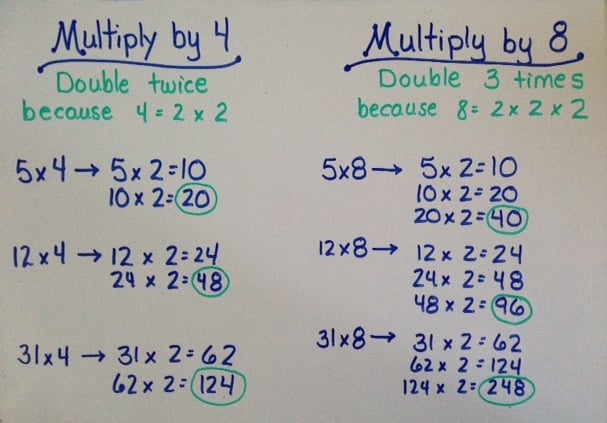 Multiply by 4
Double twice
because 4 = 2 x 2
5x4 → 5 x 2=10
10 x 2=20
12x4 → 12 x 2=24
24 x 2=48
31x4 → 31 x 2=62
62 x 2=124
Multiply by 8
Double 3 times
because 8= 2 x 2 x 2
5x8 → 5x 2=10
10 x 2=20
20 x 2=40
12x8 → 12 x 2=24
24 x 2=48
48 x 2=96
31x8 → 31 x 2=62
62 x 2=124
124 x 2=248